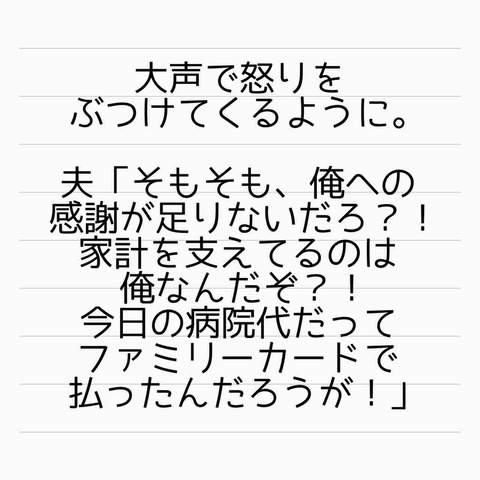 大声で怒りを
ぶつけてくるように。
夫「そもそも、俺への
感謝が足りないだろ？！
家計を支えてるのは
俺なんだぞ？！
今日の病院代だって
ファミリーカードで
払ったんだろうが！」